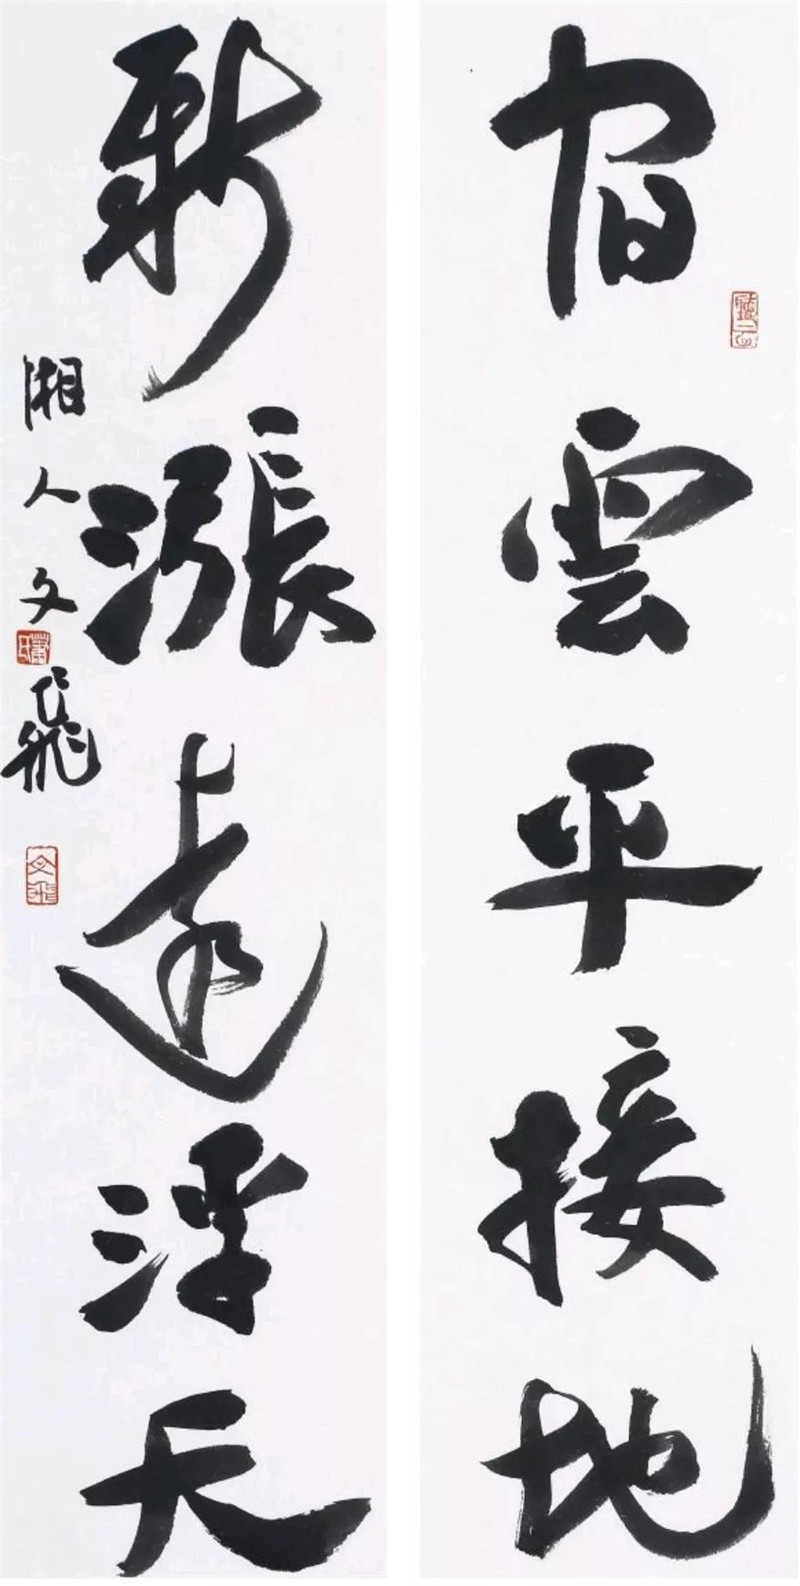 宿雲平接地
新漲遠浮天
湘人文飛
文飛